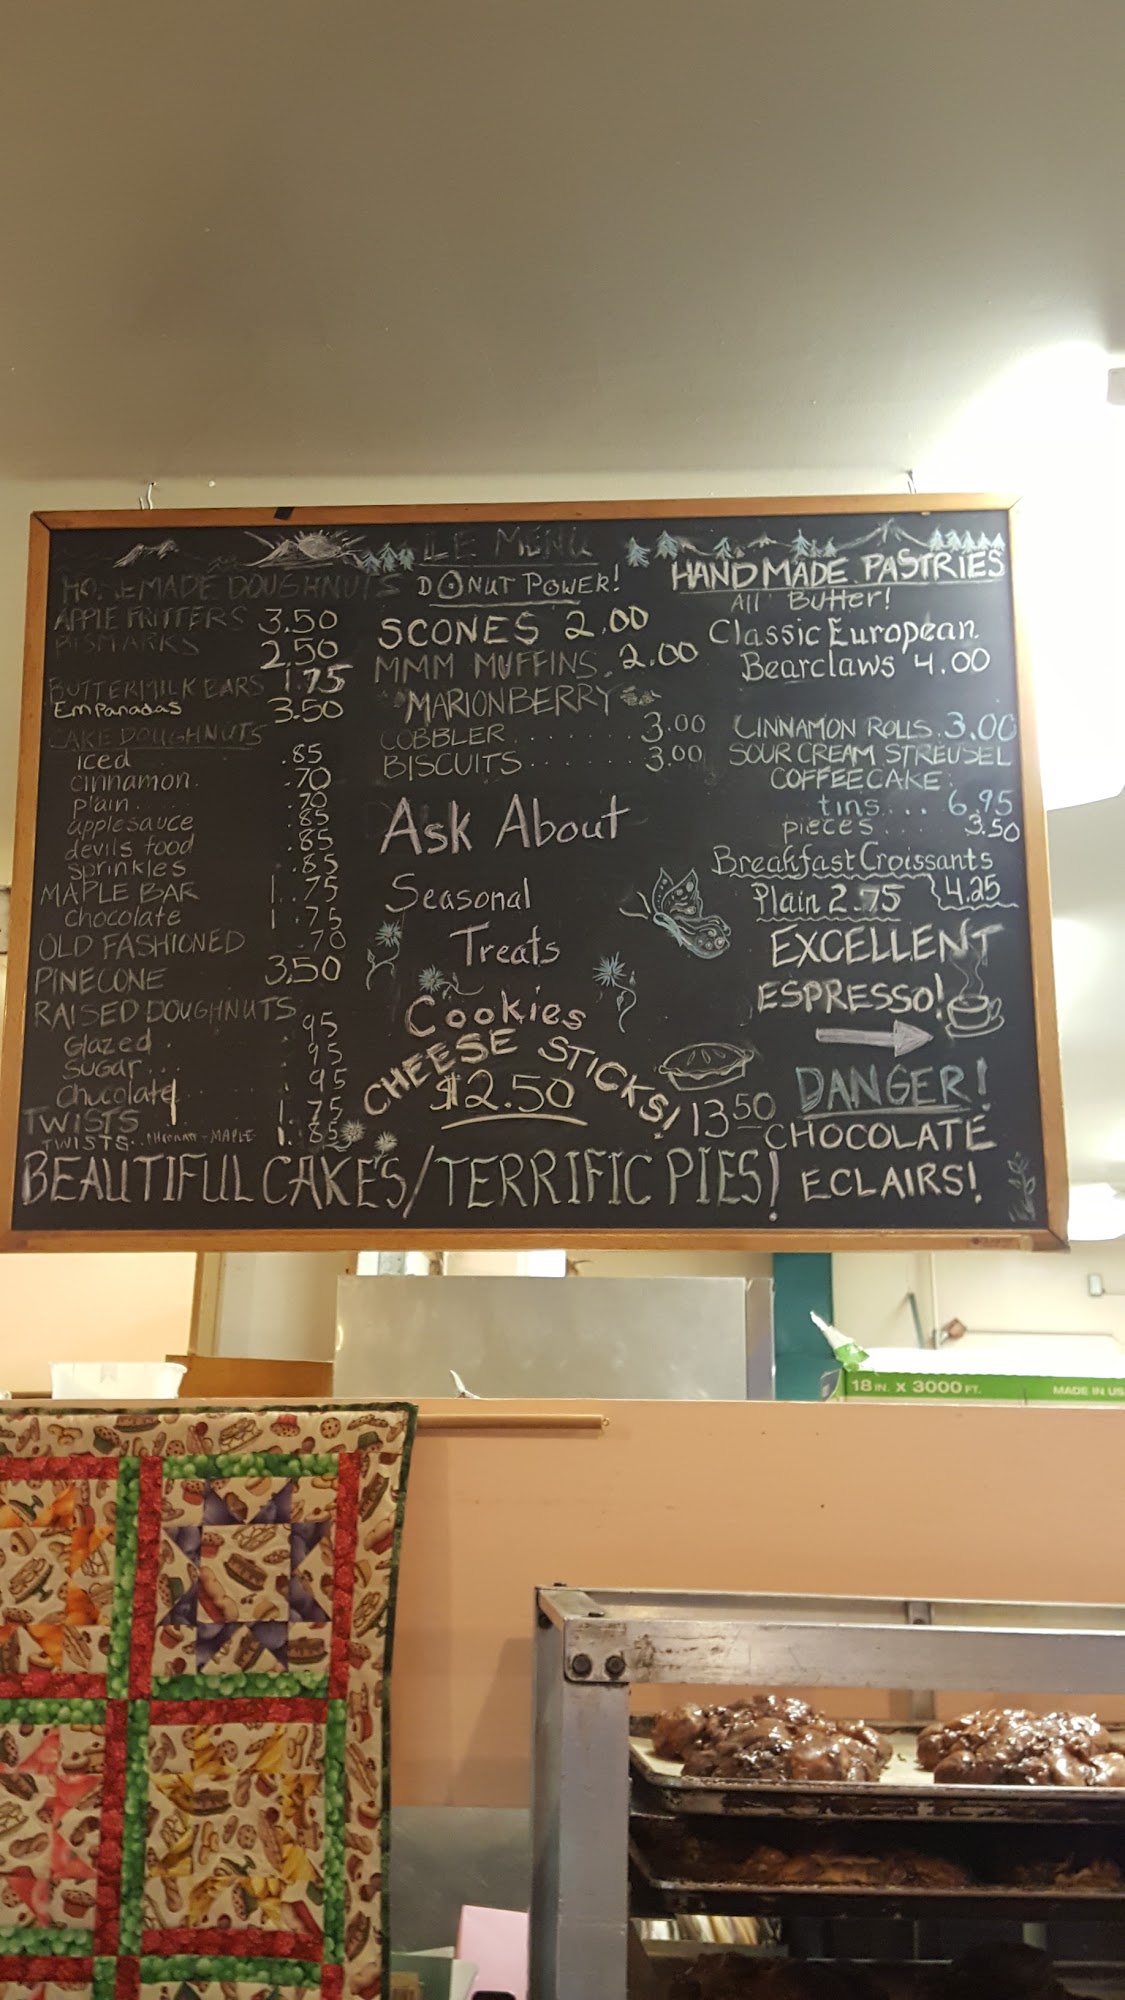 LE MENU
HOMEMADE DOUGHNUTS
APPLE FRITTERS 3.50
BISMARKS 2.50
BUTTERMILK BARS 1.75
Empanadas 3.50
CAKE DOUGHNUTS
iced .85
cinnamon .70
plain .70
applesauce .85
devils food .85
sprinkles .85
MAPLE BAR 1.75
chocolate 1.75
OLD FASHIONED .70
PINECONE 3.50
RAISED DOUGHNUTS
Glazed .95
sugar... .95
chocolate .95
TWISTS 1.75
TWISTS.. MAPLE 1.85
DONUT POWER!
SCONES 2.00
MMM MUFFINS. 2.00
MARIONBERRY
COBBLER........ 3.00
BISCUITS....... 3.00
Ask About
Seasonal
Treats
Cookies
CHEESE STICKS!
$2.50
13.50
HANDMADE PASTRIES
All Butter!
Classic European
Bearclaws 4.00
CINNAMON ROLLS. 3.00
SOUR CREAM STREUSEL
COFFEECAKE:
tins... 6.95
pieces.... 3.50
Breakfast Croissants
Plain 2.75 4.25
EXCELLENT
ESPRESSO!
DANGER!
CHOCOLATE
ECLAIRS!
BEAUTIFUL CAKES/TERRIFIC PIES!
18 IN. X 3000 FT. MADE IN US